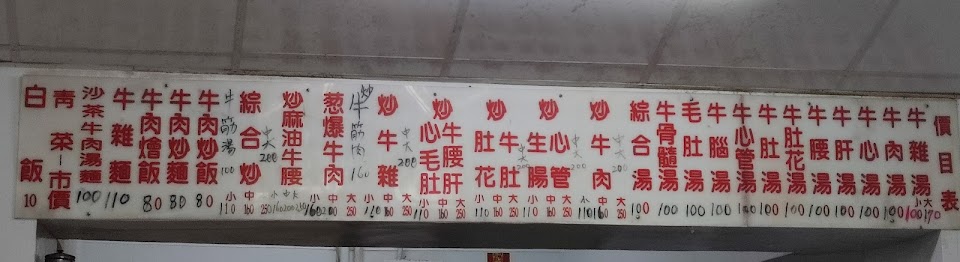 價目表
牛雜湯 小100 大170
牛肉湯 100
牛心湯 100
牛肝湯 100
牛腰湯 100
牛肚花湯 100
牛肚湯 100
牛心管湯 100
牛腦湯 100
毛肚湯 100
牛骨髓湯 100
綜合湯 100
炒牛肉 小110 中160 大200
炒心管 生腸 小110 中160 大250
炒牛肚 肚花 小110 中160 大250
炒牛腰肝 心毛肚 小110 中160 大250
炒牛雜 小110 中160 大250 中大200
炒牛筋肉 160
葱爆牛肉 小160 中200 大250
炒麻油牛腰 小160 中200 大250
綜合炒 小110 中160 大250 中大200
牛筋湯 100
牛肉炒飯 80
牛肉炒麵 80
牛肉燴飯 80
牛雜麵 110
沙茶牛肉湯麵 100
青菜-市價
白飯 10